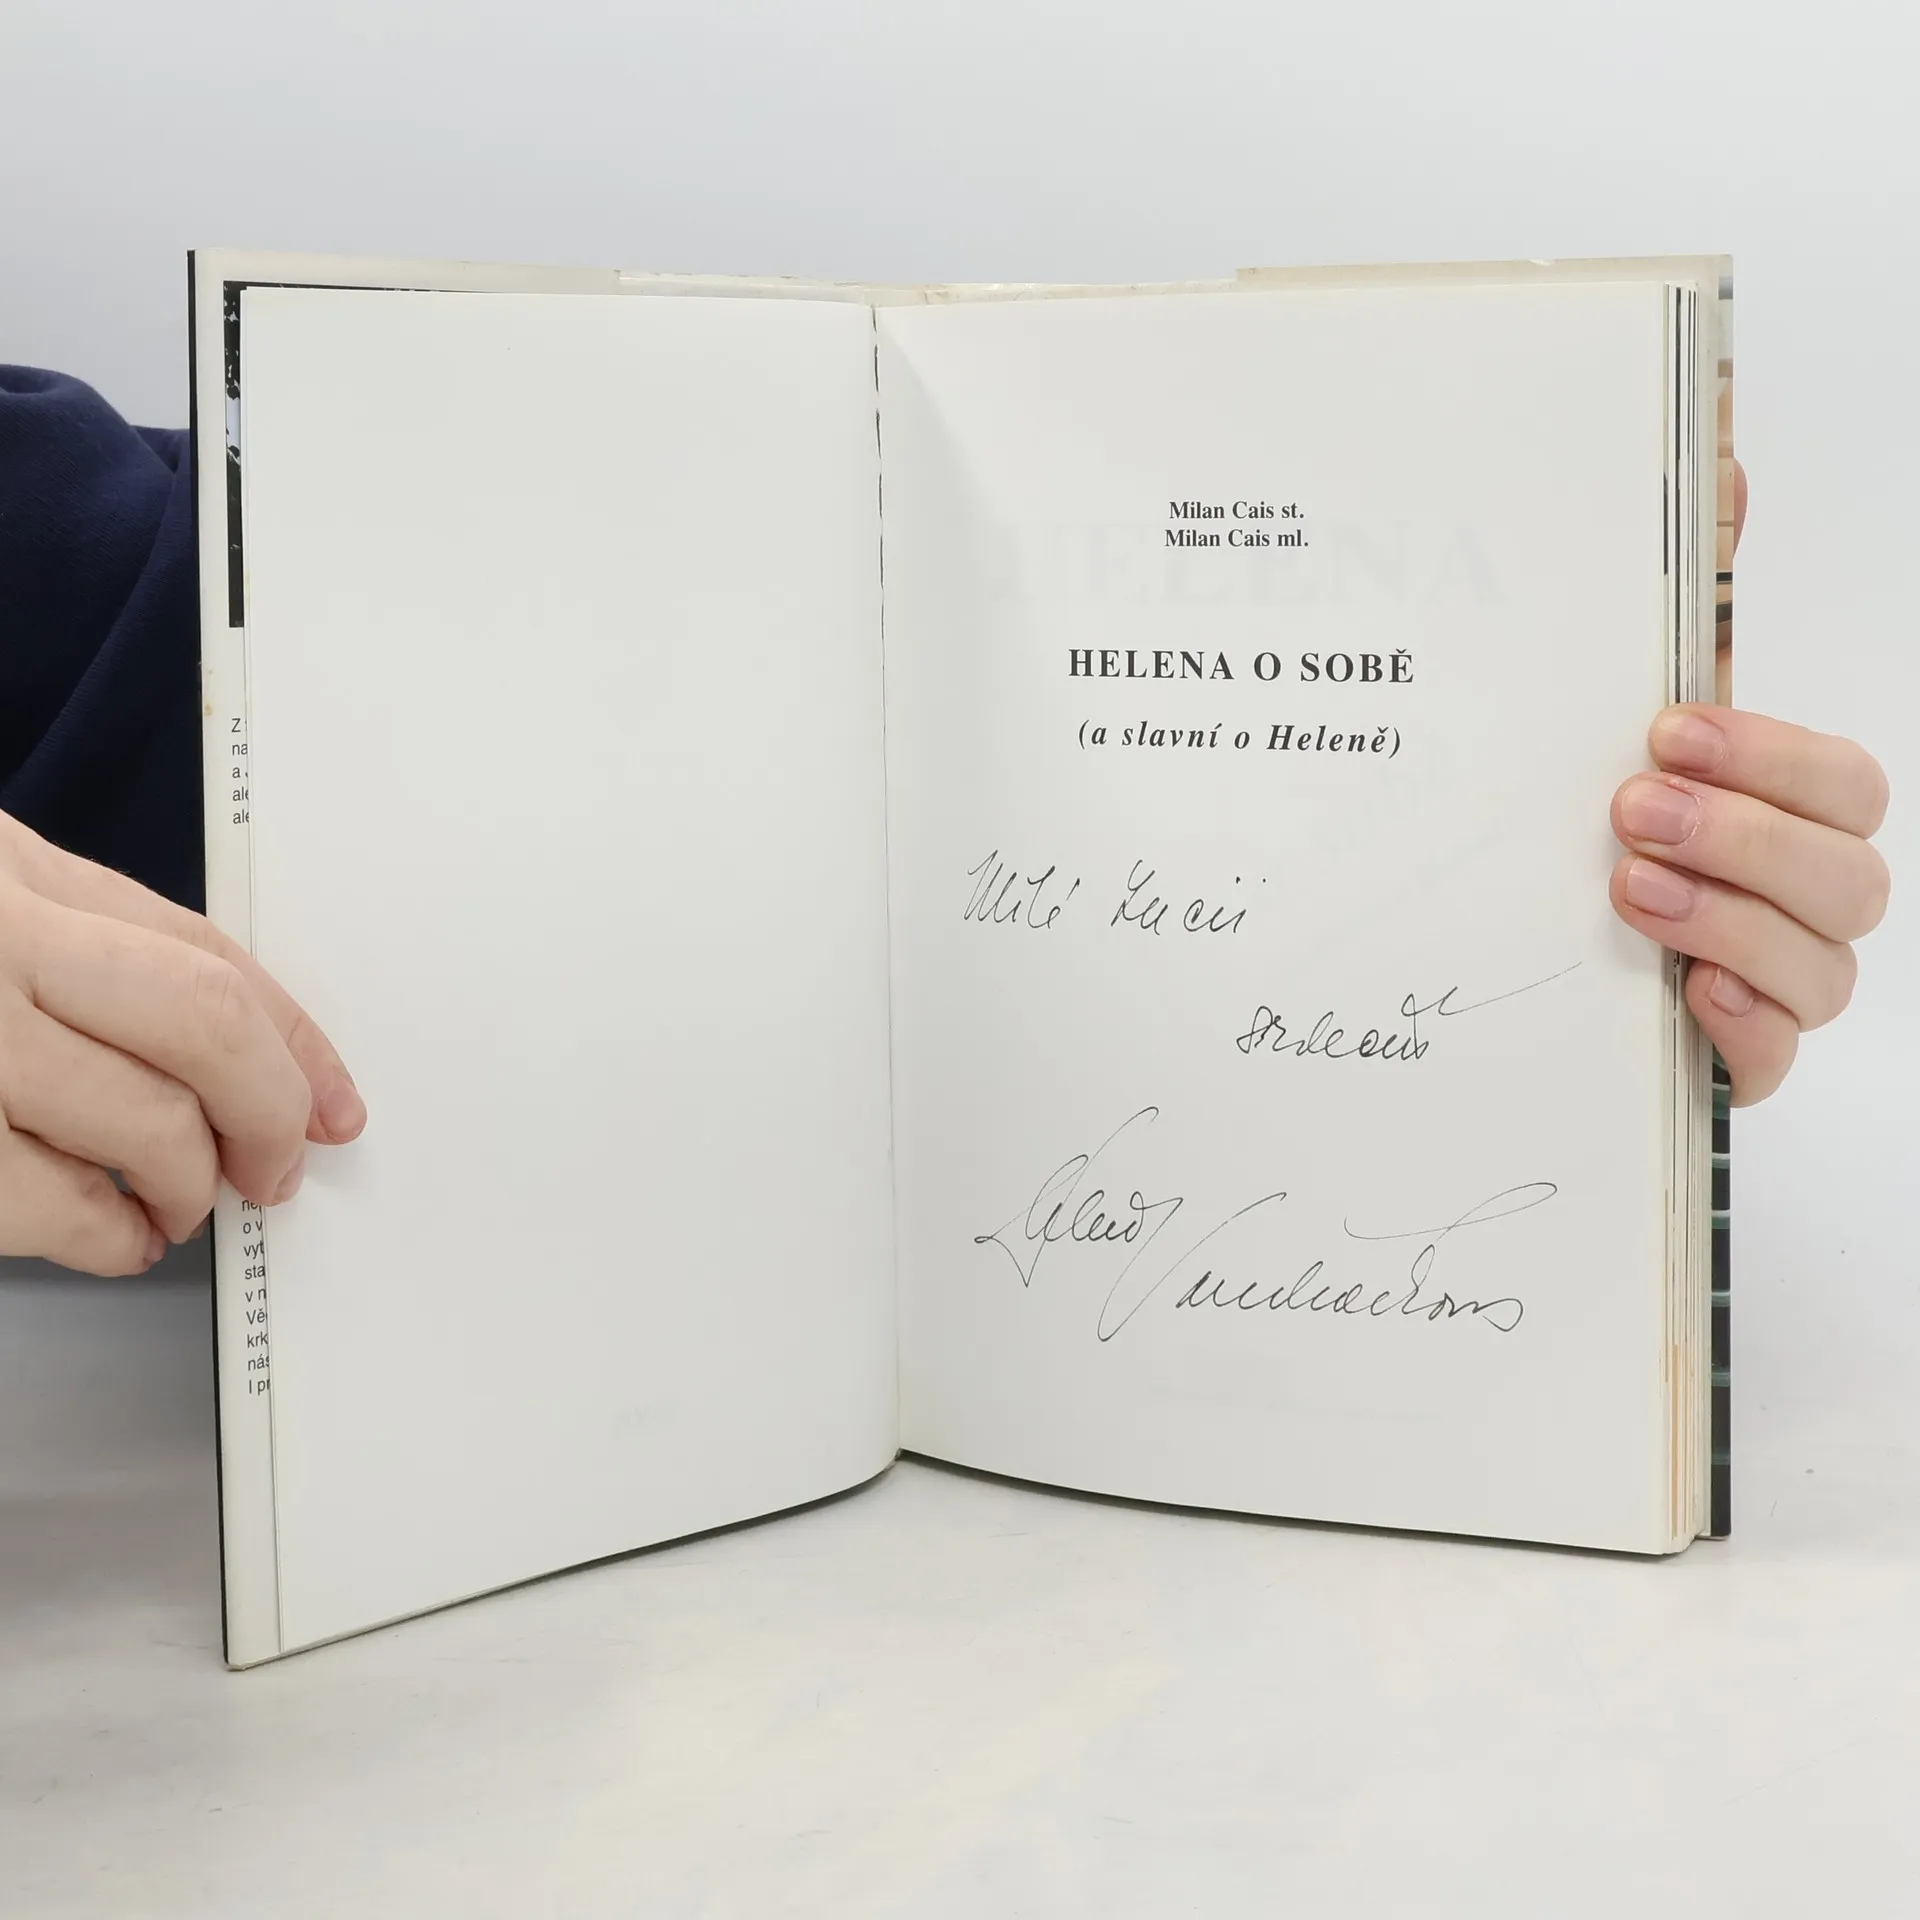 Z
na
a
ale
ale
o v
vyt
sta
v n
Vě
krk
nás
I pr
Milan Cais st.
Milan Cais ml.
HELENA O SOBĚ
(a slavní o Heleně)
Milé Lucii
srdečně
Helena Vondráčková